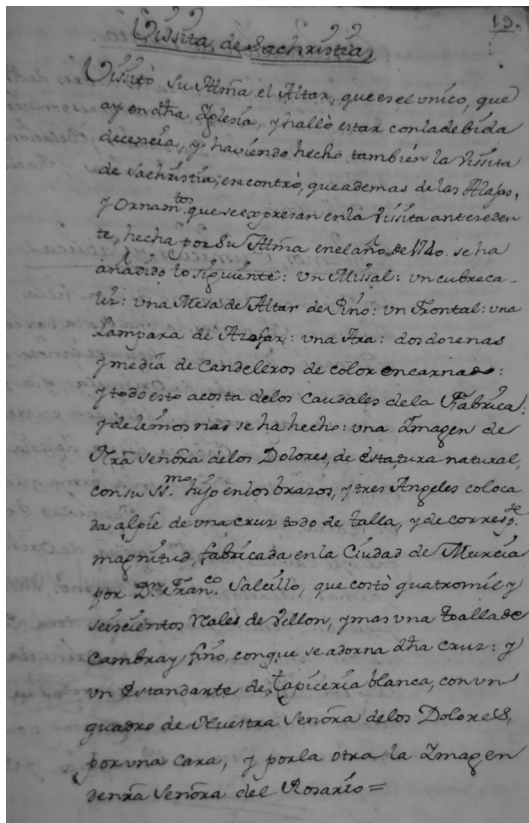 19.
Vissita de Sachristia
Vissitò Su Ittma el Altar, que es el unico, que
ay en dha Iglesia, y hallò estar con la debida
decencia, y haviendo hecho tambien la Vissita
de Sachristia, encontrò, que ademas de las Alajas,
y Ornamtos que se expresan en la Vissita anteceden
te, hecha por Su Ittma en el año de 1740. se ha
añadido lo siguiente: un Missal: un cubreca-
liz: una Mesa de Altar de Pino: un Frontal: una
Lampara de Azofar: una Ara: dos dozenas
y media de Candeleros de color encarnado:
y todo esto a costa de los Caudales de la Fabrica:
y de limosnas se ha hecho: una Imagen de
Ntra Señora de los Dolores, de estatura natural,
con su SSmo hijo en los brazos, y tres Angeles coloca
da al pie de una cruz todo de talla, y de correspte
magnitud, fabricada en la Ciudad de Murcia
por Dn Franco Salcillo, que costò quatro mil y
seiscientos Reales de Vellon, y mas una toalla de
Cambray fino, con que se adorna dha Cruz: y
un Estandarte de tapiceria blanca, con un
quadro de Nuestra Señora de los Dolores,
por una cara, y por la otra la Imagen
de nra Señora del Rosario=